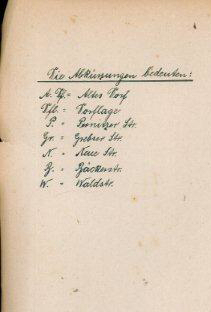 Die Abkürzungen bedeuten:
A. Df. = Altes Dorf
Dfl. = Dorflage
P. = Pernitzer Str.
Gr. = Grebser Str.
N. = Neue Str.
B. = Bäckerstr.
W. = Waldstr.